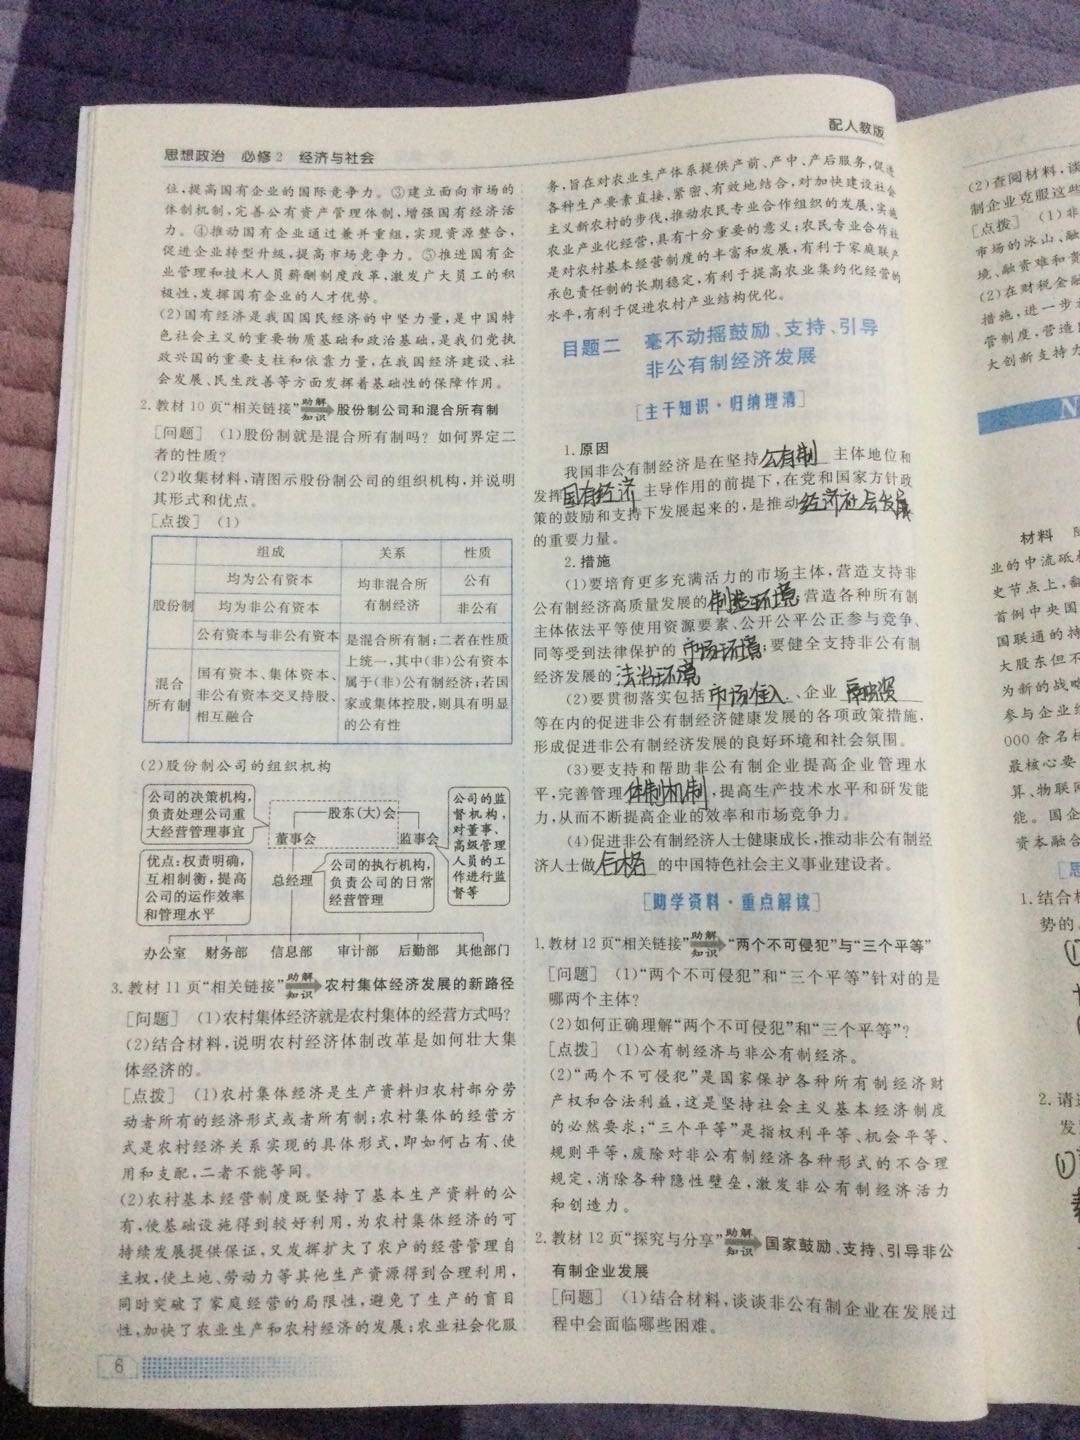 配人教版
思想政治 必修2 经济与社会
位,提高国有企业的国际竞争力。③建立面向市场的
体制机制,完善公有资产管理体制,增强国有经济活
力。④推动国有企业通过兼并重组,实现资源整合,
促进企业转型升级,提高市场竞争力。⑤推进国有企
业管理和技术人员薪酬制度改革,激发广大员工的积
极性,发挥国有企业的人才优势。
(2)国有经济是我国国民经济的中坚力量,是中国特
色社会主义的重要物质基础和政治基础,是我们党执
政兴国的重要支柱和依靠力量,在我国经济建设、社
会发展、民生改善等方面发挥着基础性的保障作用。
2.教材10页“相关链接”助解知识 股份制公司和混合所有制
[问题] (1)股份制就是混合所有制吗?如何界定二
者的性质?
(2)收集材料,请图示股份制公司的组织机构,并说明
其形式和优点。
[点拨] (1)
组成 关系 性质
股份制 均为公有资本 均非混合所有制经济 公有
均为非公有资本 非公有
公有资本与非公有资本 是混合所有制;二者在性质
上统一,其中(非)公有资本
属于(非)公有制经济;若国
家或集体控股,则具有明显
的公有性
混合所有制 国有资本、集体资本、
非公有资本交叉持股、
相互融合
(2)股份制公司的组织机构
公司的决策机构,
负责处理公司重
大经营管理事宜
股东(大)会
董事会
监事会
公司的监
督机构,
对董事、
高级管理
人员的工
作进行监
督等
优点:权责明确,
互相制衡,提高
公司的运作效率
和管理水平
总经理
公司的执行机构,
负责公司的日常
经营管理
办公室 财务部 信息部 审计部 后勤部 其他部门
3.教材11页“相关链接”助解知识 农村集体经济发展的新路径
[问题] (1)农村集体经济就是农村集体的经营方式吗?
(2)结合材料,说明农村经济体制改革是如何壮大集
体经济的。
[点拨] (1)农村集体经济是生产资料归农村部分劳
动者所有的经济形式或者所有制;农村集体的经营方
式是农村经济关系实现的具体形式,即如何占有、使
用和支配,二者不能等同。
(2)农村基本经营制度既坚持了基本生产资料的公
有,使基础设施得到较好利用,为农村集体经济的可
持续发展提供保证,又发挥扩大了农户的经营管理自
主权,使土地、劳动力等其他生产资源得到合理利用,
同时突破了家庭经营的局限性,避免了生产的盲目
性,加快了农业生产和农村经济的发展;农业社会化服
6
务,旨在对农业生产体系提供产前、产中、产后服务,促进
各种生产要素直接、紧密、有效地结合,对加快建设社会
主义新农村的步伐,推动农民专业合作组织的发展,实施
农业产业化经营,具有十分重要的意义;农民专业合作社
是对农村基本经营制度的丰富和发展,有利于家庭联产
承包责任制的长期稳定,有利于提高农业集约化经营的
水平,有利于促进农村产业结构优化。
目题二 毫不动摇鼓励、支持、引导
非公有制经济发展
[主干知识·归纳理清]
1.原因
我国非公有制经济是在坚持公有制主体地位和
发挥国有经济主导作用的前提下,在党和国家方针政
策的鼓励和支持下发展起来的,是推动经济社会发展
的重要力量。
2.措施
(1)要培育更多充满活力的市场主体,营造支持非
公有制经济高质量发展的制造环境,营造各种所有制
主体依法平等使用资源要素、公开公平公正参与竞争、
同等受到法律保护的市场环境;要健全支持非公有制
经济发展的法治环境
(2)要贯彻落实包括市场准入、企业融资
等在内的促进非公有制经济健康发展的各项政策措施,
形成促进非公有制经济发展的良好环境和社会氛围。
(3)要支持和帮助非公有制企业提高企业管理水
平,完善管理体制机制,提高生产技术水平和研发能
力,从而不断提高企业的效率和市场竞争力。
(4)促进非公有制经济人士健康成长,推动非公有制经
济人士做合格的中国特色社会主义事业建设者。
[助学资料·重点解读]
1.教材12页“相关链接”助解知识 “两个不可侵犯”与“三个平等”
[问题] (1)“两个不可侵犯”和“三个平等”针对的是
哪两个主体?
(2)如何正确理解“两个不可侵犯”和“三个平等”?
[点拨] (1)公有制经济与非公有制经济。
(2)“两个不可侵犯”是国家保护各种所有制经济财
产权和合法利益,这是坚持社会主义基本经济制度
的必然要求;“三个平等”是指权利平等、机会平等、
规则平等,废除对非公有制经济各种形式的不合理
规定,消除各种隐性壁垒,激发非公有制经济活力
和创造力。
2.教材12页“探究与分享”助解知识 国家鼓励、支持、引导非公
有制企业发展
[问题] (1)结合材料,谈谈非公有制企业在发展过
程中会面临哪些困难。
(2)查阅材料,谈
制企业克服这些
[点拨] (1)非
市场的冰山、融
境、融资难和贵
(2)在财税金融
措施,进一步
管制度,营造
大创新支持力
N
材料
业的中流砥
史节点上,翻
首例中央国
国联通的特
大股东但不
为新的战略
参与企业经
000余名核
最核心要
算、物联网
能。国企
资本融合
[思
1.结合材
势的。
①
2.请
发
①